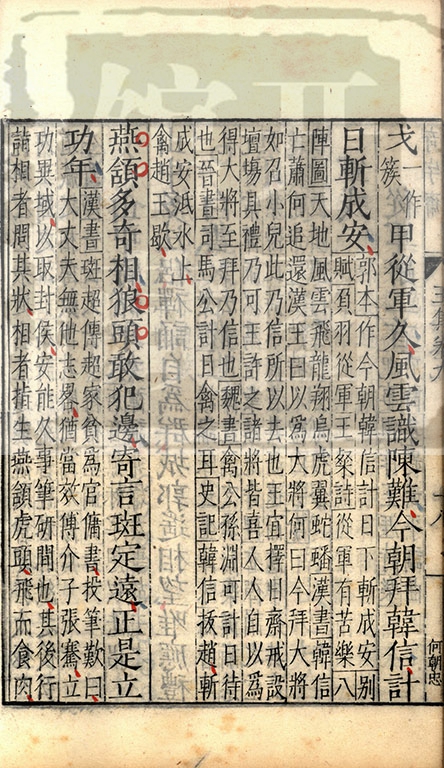 戈一作簇甲從軍久風雲識陳難今朝拜韓信計
日斬成安
郭本作今朝韓信計日下斬成安別
賦項羽從軍王粲詩從軍有苦樂八
陣圖天地風雲飛龍翔鳥虎翼蛇蟠漢書韓信
亡蕭何追還漢王曰以爲大將何曰今拜大將
如召小兒此乃信所以去也王宜擇日齋戒設
壇塲具禮乃可王許之諸將皆喜人人自以爲
得大將至拜乃信也魏書禽公孫淵可計日待
也晉書司馬公計日禽之耳史記韓信拔趙斬
成安泜水上
禽趙王歇
燕頷多奇相狼頭敢犯邊寄言班定遠正是立
功年
漢書班超傳超家貧爲官傭書投筆歎曰
大丈夫無他志畧猶當效傅介子張騫立
功異域以取封侯安能久事筆研間也其後行
詣相者問其狀相者指生燕頷虎頭飛而食肉
何朝忠